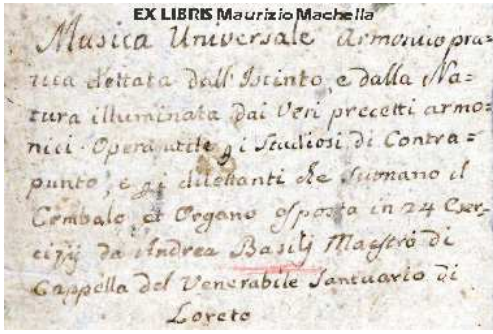 EX LIBRIS Maurizio Machella
Musica Universale Armonico pra=
tica dettata dall'Istinto, e dalla Na=
tura illuminata dai Veri precetti armo=
nici. Opera utile p i Studiosi di Contra=
punto, e p i dilettanti che suonano il
Cembalo, et Organo esposta in 24 Eser=
cizij da Andrea Basilj Maestro di
Cappella del Venerabile Santuario di
Loreto